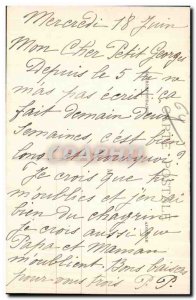 Mercredi 18 Juin
Mon Cher Petit Georges
Depuis le 5 tu ne
m'as pas écrit ça
fait demain deux
semaines, c'est bien
long
Je crois que tu
m'oublies et j'en ai
bien du chagrin
Je crois aussi que
Papa et Maman
m'oublient. Bons baisers
pour vous trois P. P.